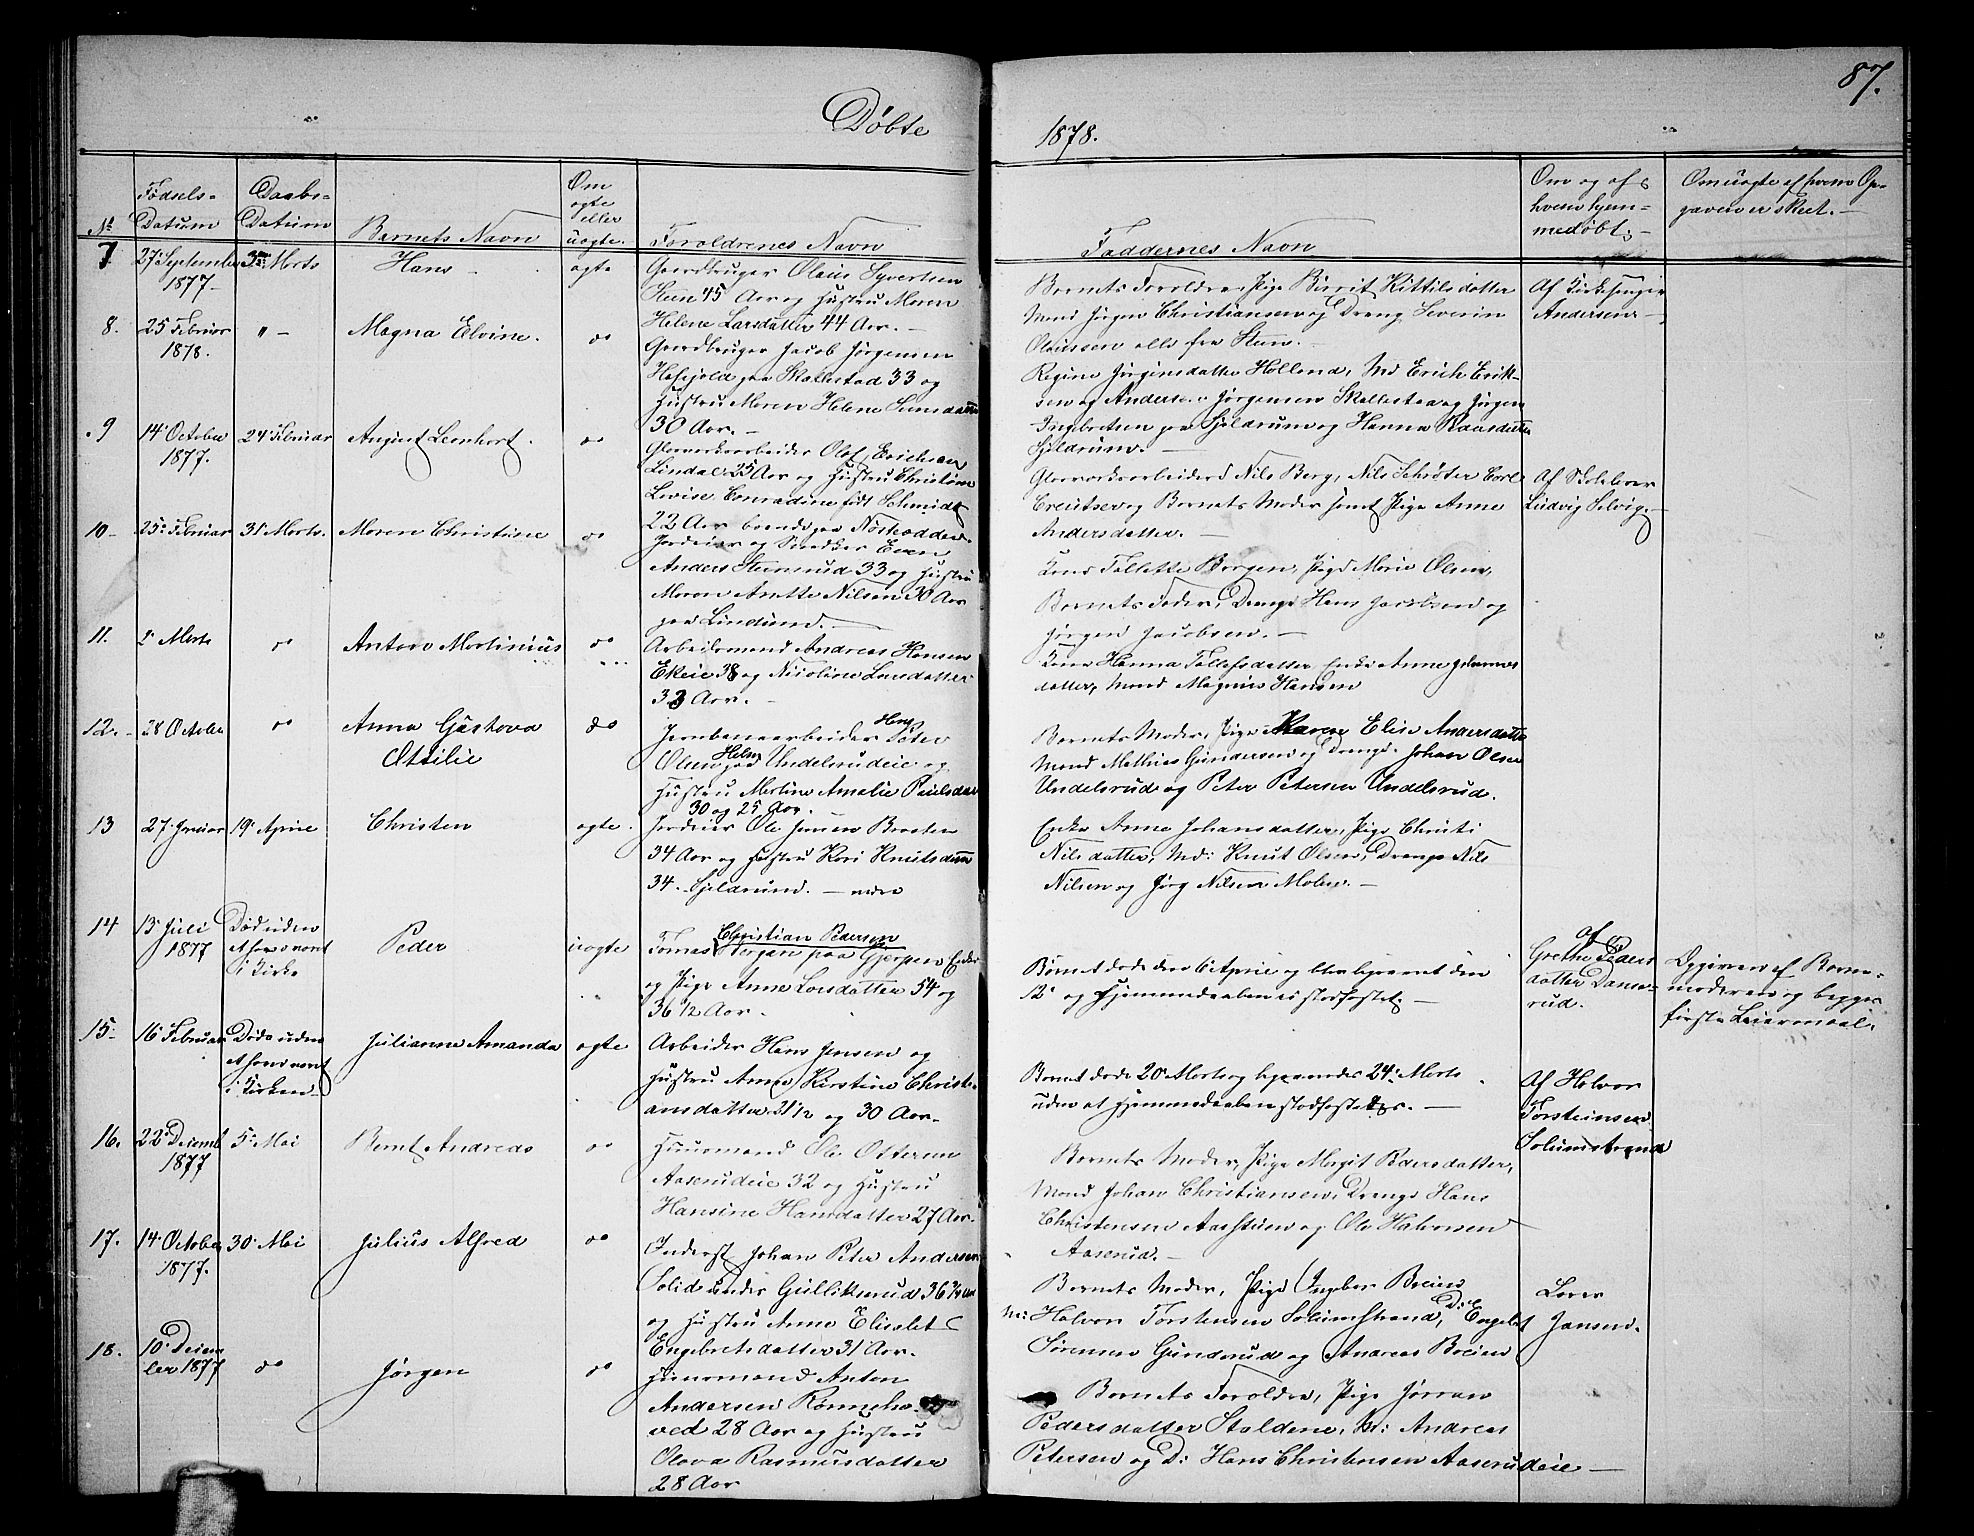 87.
Døbte
1878.
Nº
Fødsels-
Datum
Daabs-
Datum
Barnets Navn
Om
ægte
eller
uægte.
Forældrenes Navn
Faddernes Navn
Om og af
hvem hjem-
medøbt.-
Om uægte af hvem Op-
gaven er skeet.-
7
27 September
1877-
Marts
Hans -
ægte
Gaardbruger Olaus Syvertsen
Stun 45 Aar og Hustru Maren
Helene Larsdatter 44 Aar. -
Barnets Forældre, Pige Birgit Kittilsdatter
Mand Jørgen Christiansen og Dreng Severin
Olaussen alle fra Stun. -
Af Kirkesanger
Andersen -
8.
25 Februar
1878.
" -
Magna Elvine.
do
Gaardbruger Jacob Jørgensen
paa Skallestad 33 og
Hustru Maren Helene
30 Aar. -
Regine Jørginsdatter Holland, Md Erich Erik-
sen og Anders Jørgensen Skallestad og Jørgen
Ingebretsen paa Sjeldrum og Hanna
Sjeldrum. -
9
14 October
1877.
24 Februar
August Leonhart.
do
Glasværksarbeider Olof Erichsen
Lindal 25 Aar og Hustru Christine
Lovise Conradine født Schmidt
22 Aar boende paa
Glasværksarbeiderd Nils Berg, Nils Schrøter Carl
Creutsen og Barnets Moder samt Pige Anne
Andersdatter. -
Af Skolelærer
Ludvig Selvig. -
10-
25 Februar
31 Marts.
Maren Christine
do
Jordeier og Snedker Even
Anders Steinsrud 33 og Hustru
Maren Anette Nilsen 30 Aar
paa Lindsund. -
Kone Tollette Borgen, Pige Marie Olsen,
Barnets Fader, Dreng Hans Jacobsen og
Jørgen Jacobsen. -
11.
2 Marts
do
Anton Martinius
do
Arbeidsmand Andreas Hansen
Ekeie 38 og Nicoline Larsdatter
33 Aar. -
Kone Hanna Tollefsdatter, Enke Anne
datter, Mand Magnus Hansen
12. -
28 October
do
Anna Gustava
Ottilie
do
Jernbanearbeider Peter
Olsen paa Undelsrudeie og
Hustru Martine Amalie
30 og 25 Aar.
Barnets Moder, Pige Maren Elise Andersdatter
Mand Mathias Gundersen og Dreng. Johan Olsen
Undelsrud og Peter Petersen Undelsrud.
13
27 Januar
19 April
Christen
ægte.
Jordeier Ole Jensen Braaten
34 Aar og Hustru Kari
34. Sjeldrund. - nedre
Enke Anne Johansdatter, Pige Christi
Nilsdatter, Md: Knut Olsen, Dreng Nils
Nilsen og Jørg Nilsen Moben. -
14
13 Juli
1877
Død uden
at have været
i Kirke
Peder
uægte
Christian Pedersen
Tomas Bergan paa Gjerpen Enke
og Pige Anne Larsdatter 54 og
36 1/2 Aar.
Barnet døde den 6 April og blev begravet den
12 og Hjemmedaaben ei stadfæstet -
af
Grethe Peders
datter Dans-
rud.
Opgiven af Barne-
moderen og begges
første Leiermaal.
15.
16 Februar
Døde uden
at have været
i Kirken
Julianne Amanda
ægte
Arbeider Hans Jensen og
Hustru Anne Kirstine Christi-
ansdatter 31 1/2 og 30 Aar. -
Barnet døde 20 Marts og begravedes 24 Marts
uden at Hjemmedaaben stadfæstedes. -
Af Halvor
Torsteinsen
Solumstrand
16.
22 Decemb
1877
5 Mai
Bernt Andreas
do
Huusmand Ole Ottersen
Aaserudeie 32 og Hustru
Hansine Hansdatter 27 Aar.
Barnets Moder, Pige Margit Pedersdatter,
Mand Johan Christiansen, Dreng Hans
Christensen Aasstuen og Ole Halvorsen
Aaserud. -
17.
14 October
1877.
30 Mai
Julius Alfred
do
Inderst Johan Peter Andersen
Solid under Gulliksrud 36 3/4 Aar
og Hustru Anne Elisabet
Engebretsdatter 31 Aar.
Barnets Moder, Pige Ingebor Breien
M: Halvor Torstensen Solumstrand, D: Engebet
Sørensen Gunderud og Andreas Breien
Lærer
Jansen.
18.
10 Decem-
ber 1877
do
Jørgen
do
Huusmand Anton
Andersen Rønneho-
ved 28 Aar og Hustru
Olava Rasmusdatter
28 Aar
Barnets Forældre, Pige Jørran
Pedersdatter Staldene, M: Andreas
Petersen og D: Hans Christensen Aaserudeie -